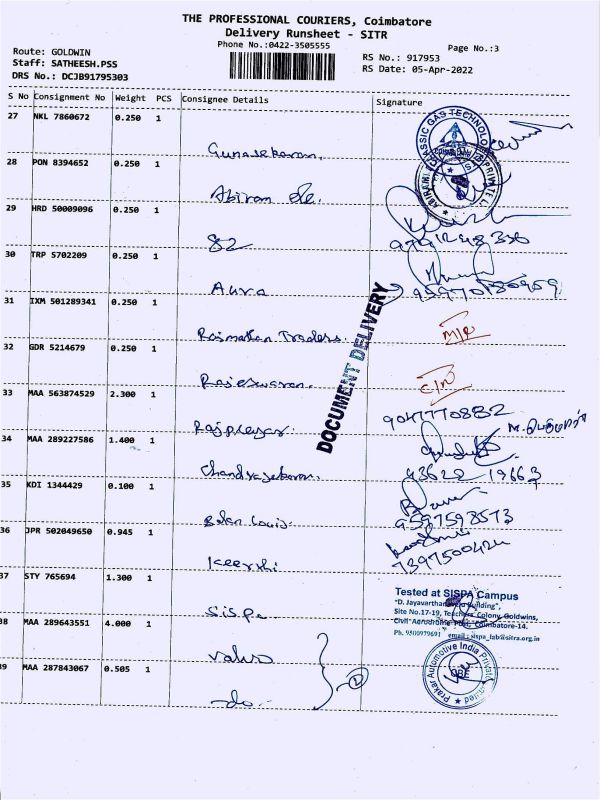 THE PROFESSIONAL COURIERS, Coimbatore
Delivery Runsheet - SITR
Phone No.:0422-3505555
Page No.:3
Route: GOLDWIN
Staff: SATHEESH.PSS
DRS No.: DCJB91795303
RS No.: 917953
RS Date: 05-Apr-2022
S No Consignment No Weight PCS Consignee Details Signature
27 NKL 7860672 0.250 1
Gunasekaran.
28 PON 8394652 0.250 1
Abiram
29 HRD 50009096 0.250 1
82
30 TRP 5702209 0.250 1
Aura
31 IXM 501289341 0.250 1
DOCUMENT DELIVERY
Traders.
32 GDR 5214679 0.250 1
Rajeswaran.
33 MAA 563874529 2.300 1
9047770882
34 MAA 289227586 1.400 1
Chandrasekaran. 93622 19663
35 KDI 1344429 0.100 1
Louis. 9597598573
36 JPR 502049650 0.945 1
Keerthi 7397500424
37 STY 765694 1.300 1
Sispa
Tested at SISPA Campus
Site No.17-19, Teachers Colony, Goldwins,
Civil Aerodrome Post, Coimbatore-14.
Ph. 9500979691 email : sispa_lab@sitra.org.in
38 MAA 289643551 4.000 1
39 MAA 287843067 0.505 1
do.
2
Prakar Automotive India Private Limited
CBE